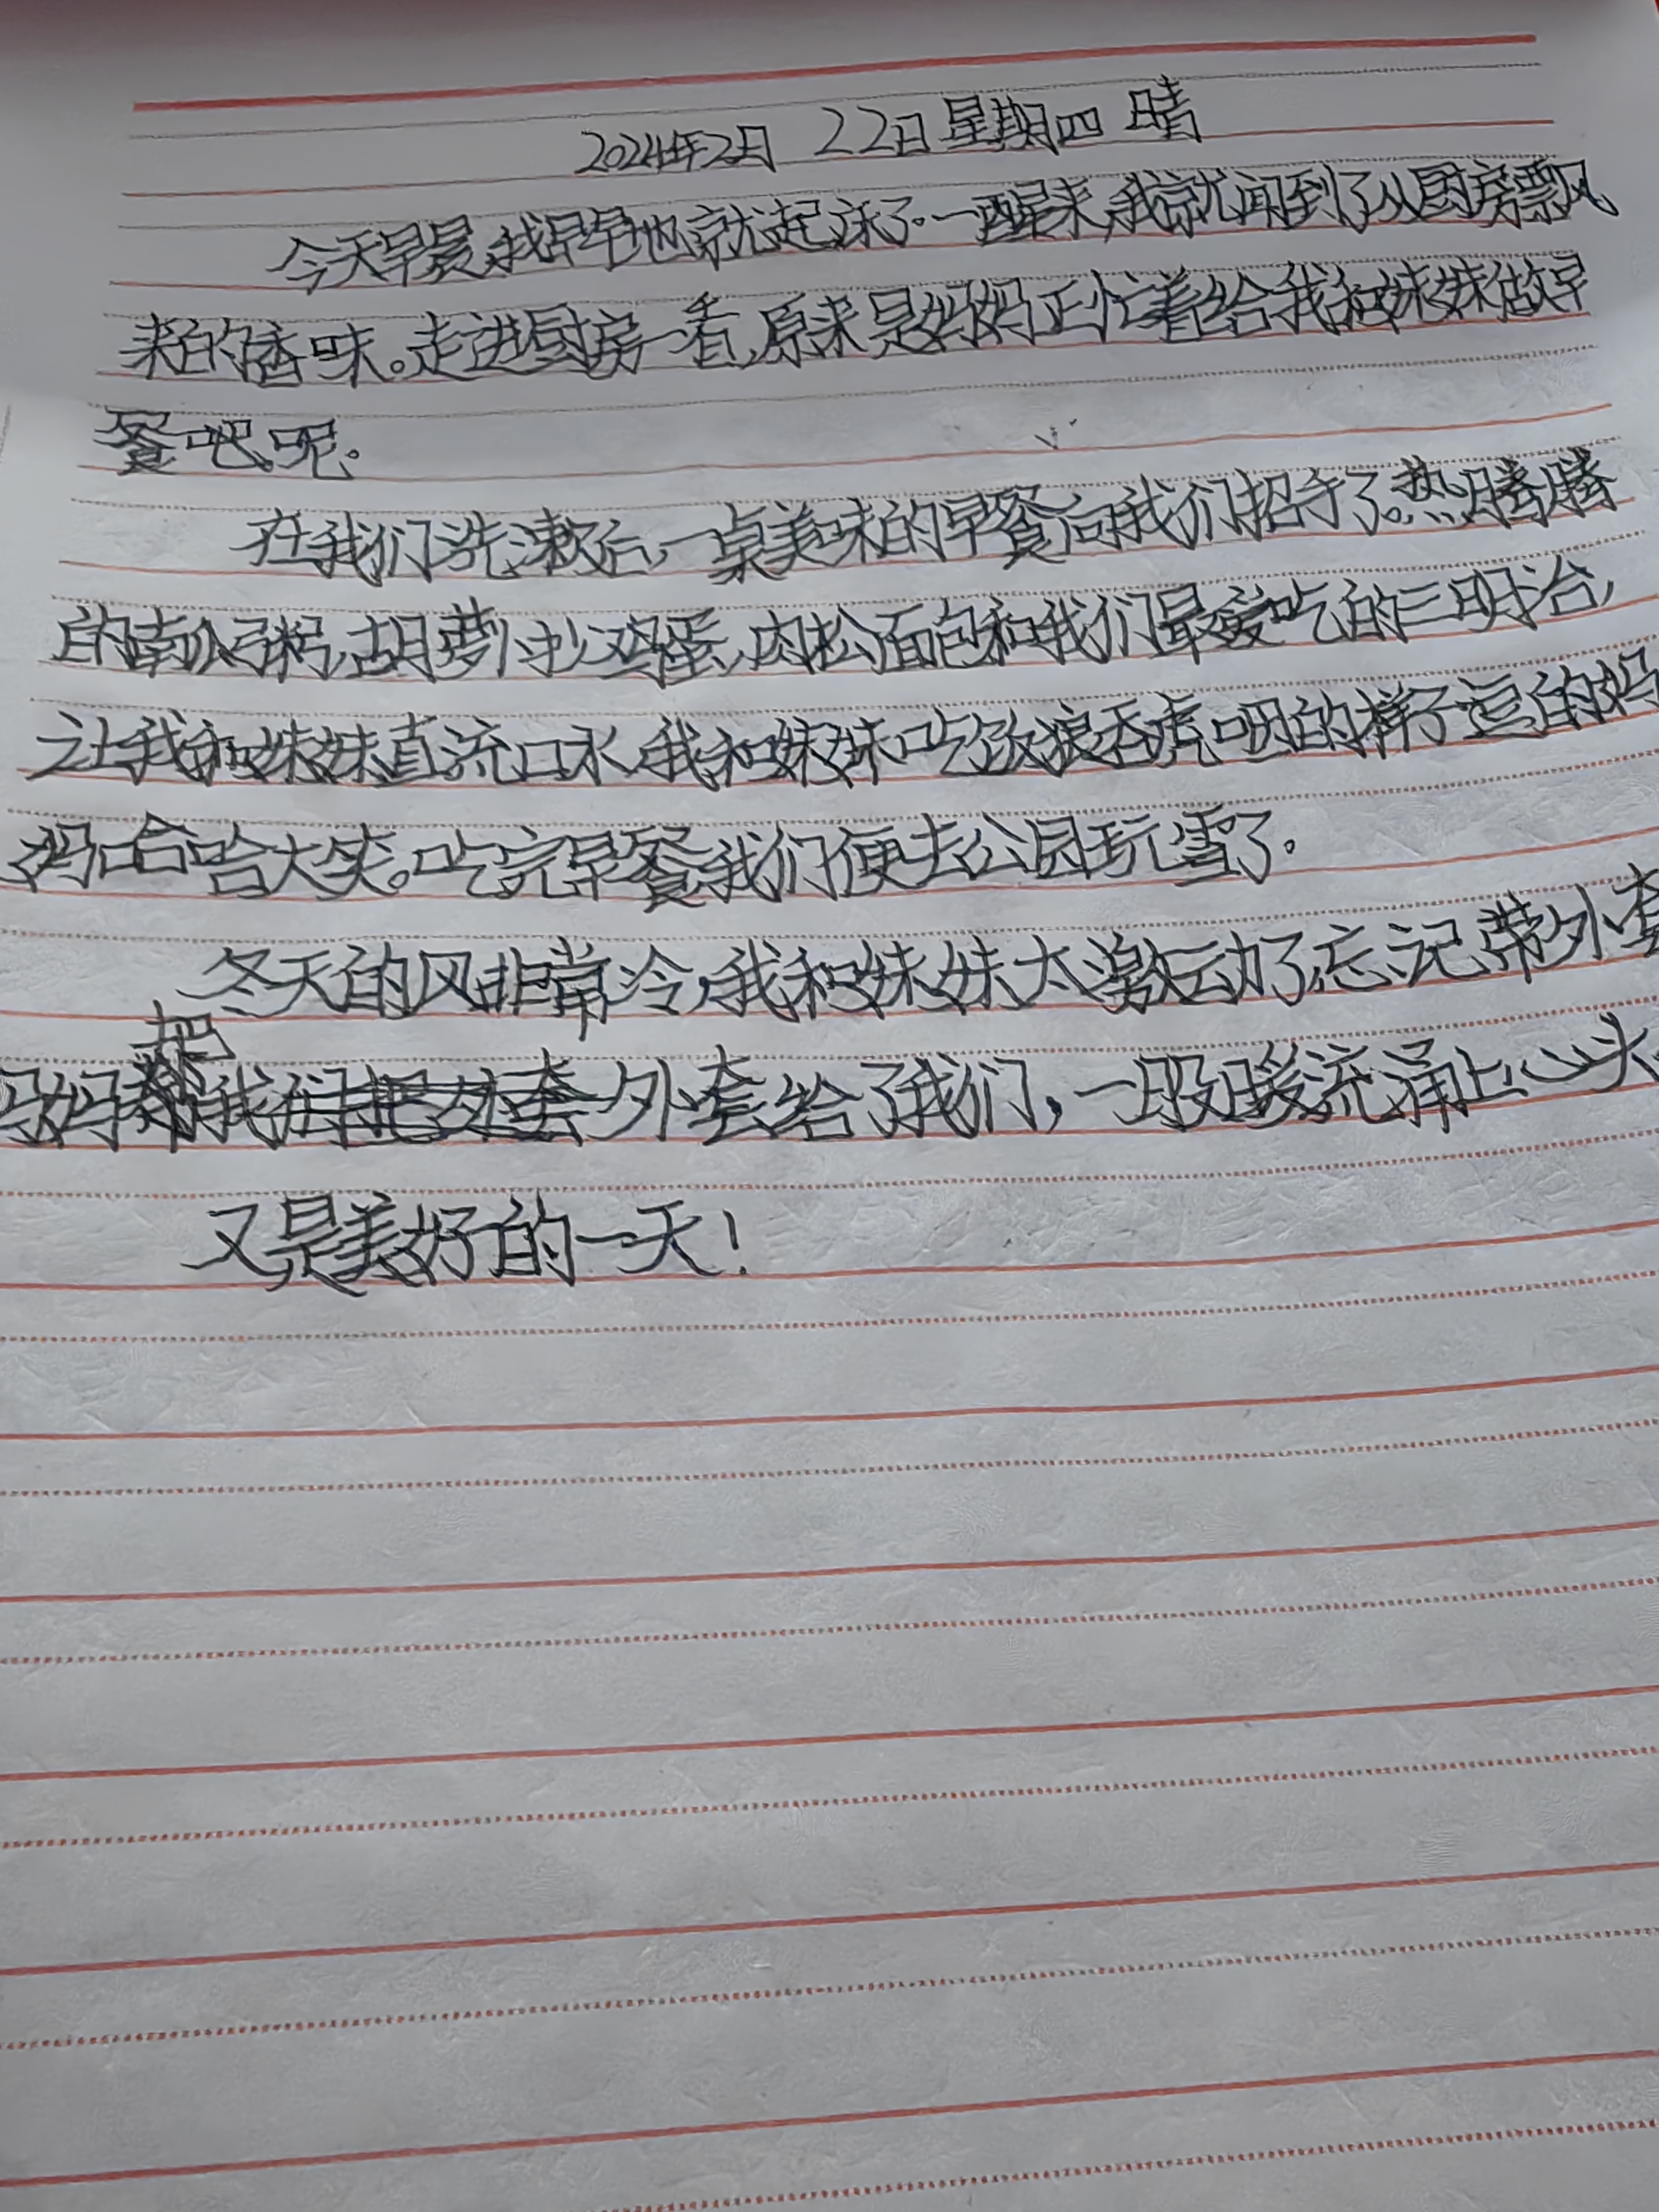 2024年2月 22日 星期四 晴
今天早晨,我早早地就起床了。一醒来,我就闻到了从厨房飘
来的香味。走进厨房一看,原来是妈妈正忙着给我和妹妹做早
餐吧呢。
在我们洗漱后,一桌美味的早餐向我们招手了。热腾腾
的南瓜粥,胡萝卜炒鸡蛋,肉松面包和我们最爱吃的三明治,
让我和妹妹直流口水,我和妹妹吃饭狼吞虎咽的样子逗的妈
妈哈哈大笑。吃完早餐,我们便去公园玩雪了。
冬天的风非常冷,我和妹妹太激动了,忘记带外套
把
妈妈外套给了我们,一股暖流涌上心头
又是美好的一天!